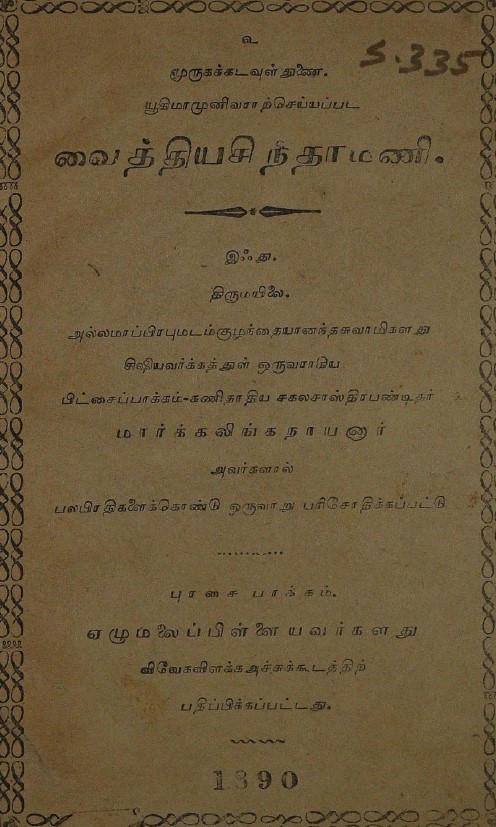 உ
S.335
முருகக்கடவுள் துணை.
யூகிமாமுனிவராற்செய்யப்பட்ட
வைத்தியசிந்தாமணி.
இஃது,
திருமயிலை.
அல்லமாப்பிரபுமடம்குழந்தையானந்தசுவாமிகளது
சிஷியவர்க்கத்துள் ஒருவராகிய
பிட்சைப்பாக்கம்-கணிதாதிய சகலசாஸ்திரபண்டிதர்
மார்க்கலிங்கநாயனார்
அவர்களால்
பலபிரதிகளைக்கொண்டு ஒருவாறு பரிசோதிக்கப்பட்டு
புரசை பாக்கம்.
ஏழுமலைப்பிள்ளையவர்களது
விவேகவிளக்கஅச்சுக்கூடத்திற்
பதிப்பிக்கப்பட்டது.
1890